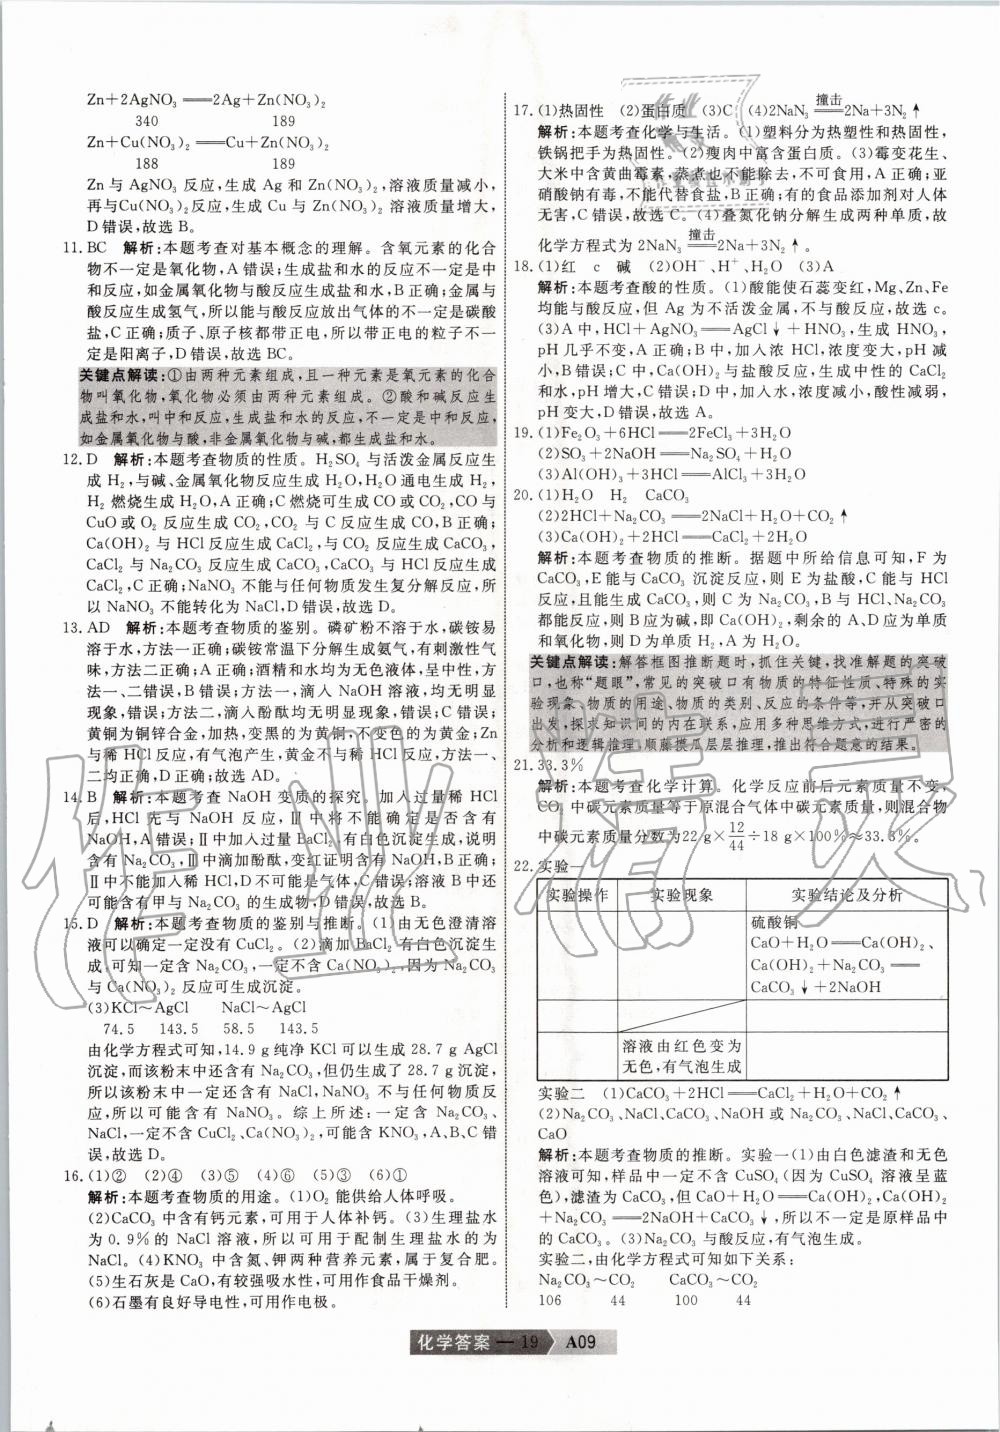 Zn+2AgNO₃══2Ag+Zn(NO₃)₂
340 189
Zn+Cu(NO₃)₂══Cu+Zn(NO₃)₂
188 189
Zn 与 AgNO₃ 反应,生成 Ag 和 Zn(NO₃)₂,溶液质量减小,
再与Cu(NO₃)₂反应,生成 Cu 与 Zn(NO₃)₂ 溶液质量增大,
D 错误,故选 B。
11. BC 解析:本题考查对基本概念的理解。含氧元素的化合
物不一定是氧化物,A 错误;生成盐和水的反应不一定是中
和反应,如金属氧化物与酸反应生成盐和水,B正确;金属与
酸反应生成氢气,所以能与酸反应放出气体的不一定是碳酸
盐,C 正确;质子、原子核都带正电,所以带正电的粒子不一
定是阳离子,D 错误,故选 BC。
关键点解读:①由两种元素组成,且一种元素是氧元素的化合
物叫氧化物,氧化物必须由两种元素组成。②酸和碱反应生
成盐和水,叫中和反应,生成盐和水的反应,不一定是中和反应,
如金属氧化物与酸,非金属氧化物与碱,都生成盐和水。
12. D 解析:本题考查物质的性质。H₂SO₄ 与活泼金属反应生
成 H₂,与碱、金属氧化物反应生成 H₂O,H₂O 通电生成 H₂,
H₂ 燃烧生成 H₂O,A 正确;C 燃烧可生成 CO 或 CO₂,CO 与
CuO或 O₂ 反应生成 CO₂,CO₂ 与 C 反应生成 CO,B 正确;
Ca(OH)₂ 与 HCl 反应生成 CaCl₂,与 CO₂ 反应生成 CaCO₃,
CaCl₂ 与 Na₂CO₃ 反应生成 CaCO₃,CaCO₃ 与 HCl 反应生成
CaCl₂,C 正确;NaNO₃ 不能与任何物质发生复分解反应,所
以 NaNO₃ 不能转化为 NaCl,D 错误,故选 D。
13. AD 解析:本题考查物质的鉴别。磷矿粉不溶于水,碳铵易
溶于水,方法一正确;碳铵常温下分解生成氨气,有刺激性气
味,方法二正确;A 正确;酒精和水均为无色液体,呈中性,方
法一、二错误,B 错误;方法一,滴入 NaOH 溶液,均无明显
现象,错误;方法二,滴入酚酞均无明显现象,错误;C 错误;
黄铜为铜锌合金,加热,变黑的为黄铜,不变色的为黄金;Zn
与稀 HCl 反应,有气泡产生,黄金不与稀 HCl 反应,方法一、
二正确,D正确;故选 AD。
14. B 解析:本题考查 NaOH 变质的探究。加入过量稀 HCl
后,HCl 先与 NaOH 反应,Ⅱ中将不能确定是否含有
NaOH,A 错误;Ⅱ中加入过量 BaCl₂,有白色沉淀生成,说明
含有 Na₂CO₃,Ⅱ中滴加酚酞,变红证明含有 NaOH,B 正确;
Ⅱ中不能加入稀 HCl,D 不可能是气体,C 错误;溶液 B 中还
可能含有甲与 Na₂CO₃ 的生成物,D 错误,故选 B。
15. D 解析:本题考查物质的鉴别与推断。(1)由无色澄清溶
液可以确定一定没有 CuCl₂。(2)滴加 BaCl₂ 有白色沉淀生
成,可知一定含 Na₂CO₃,一定不含 Ca(NO₃)₂,因为 Na₂CO₃
与 Ca(NO₃)₂ 反应可生成沉淀。
(3)KCl～AgCl NaCl～AgCl
74.5 143.5 58.5 143.5
由化学方程式可知,14.9 g 纯净 KCl 可以生成 28.7 g AgCl
沉淀,而该粉末中还含有 Na₂CO₃,但仍生成了 28.7 g 沉淀,
所以该粉末中一定还含有 NaCl,NaNO₃ 不与任何物质反
应,所以可能含有 NaNO₃。综上所述:一定含 Na₂CO₃、
NaCl,一定不含 CuCl₂、Ca(NO₃)₂,可能含 KNO₃,A、B、C 错
误,故选 D。
16. (1)② (2)④ (3)⑤ (4)⑥ (5)③ (6)①
解析:本题考查物质的用途。(1)O₂ 能供给人体呼吸。
(2)CaCO₃ 中含有钙元素,可用于人体补钙。(3)生理盐水
为 0.9%的 NaCl 溶液,所以可用于配制生理盐水的为
NaCl。(4)KNO₃ 中含氮、钾两种营养元素,属于复合肥。
(5)生石灰是 CaO,有较强吸水性,可用作食品干燥剂。
(6)石墨有良好导电性,可用作电极。
17. (1)热固性 (2)蛋白质 (3)C (4)2NaN₃ 撞击══ 2Na+3N₂↑
解析:本题考查化学与生活。(1)塑料分为热塑性和热固性,
铁锅把手为热固性。(2)瘦肉中富含蛋白质。(3)霉变花生、
大米中含黄曲霉素,蒸煮也不能除去,不可食用,A 正确;亚
硝酸钠有毒,不能代替食盐,B 正确;有的食品添加剂对人体
无害,C 错误,故选 C。(4)叠氮化钠分解生成两种单质,故
化学方程式为 2NaN₃ 撞击══ 2Na+3N₂↑。
18. (1)红 c 碱 (2)OH⁻、H⁺、H₂O (3)A
解析:本题考查酸的性质。(1)酸能使石蕊变红,Mg、Zn、Fe
均能与酸反应,但 Ag 为不活泼金属,不与酸反应,故选 c。
(3)A 中,HCl+AgNO₃══AgCl↓+HNO₃,生成 HNO₃,
pH 几乎不变,A 正确;B 中,加入浓 HCl,浓度变大,pH 减
小,B 错误;C 中,Ca(OH)₂ 与盐酸反应,生成中性的 CaCl₂
和水,pH 增大,C 错误;D 中,加入水,浓度减小,酸性减弱,
pH变大,D 错误,故选 A。
19. (1)Fe₂O₃+6HCl══2FeCl₃+3H₂O
(2)SO₃+2NaOH══Na₂SO₄+H₂O
(3)Al(OH)₃+3HCl══AlCl₃+3H₂O
20. (1)H₂O H₂ CaCO₃
(2)2HCl+Na₂CO₃══2NaCl+H₂O+CO₂↑
(3)Ca(OH)₂+2HCl══CaCl₂+2H₂O
解析:本题考查物质的推断。据题中所给信息可知,F 为
CaCO₃,E 能与 CaCO₃ 沉淀反应,则 E 为盐酸,C 能与 HCl
反应,且能生成 CaCO₃,则 C 为 Na₂CO₃,B 与 HCl、Na₂CO₃
都能反应,则 B 应为碱,即 Ca(OH)₂,剩余的 A、D 应为单质
和氧化物,则 D 为单质 H₂,A 为 H₂O。
关键点解读:解答框图推断题时,抓住关键,找准解题的突破
口,也称“题眼”,常见的突破口有物质的特征性质、特殊的实
验现象、物质的用途、物质的类别、反应的条件等,并从突破口
出发,探求知识间的内在联系,应用多种思维方式,进行严密的
分析和逻辑推理,顺藤摸瓜层层推理,推出符合题意的结果。
21. 33.3%
解析:本题考查化学计算。化学反应前后元素质量不变,
CO₂ 中碳元素质量等于原混合气体中碳元素质量,则混合物
中碳元素质量分数为22 g×12/44÷18 g×100%≈33.3%。
22. 实验一
实验操作 实验现象 实验结论及分析
硫酸铜
CaO+H₂O══Ca(OH)₂、
Ca(OH)₂+Na₂CO₃══
CaCO₃↓+2NaOH
溶液由红色变为
无色,有气泡生成
实验二 (1)CaCO₃+2HCl══CaCl₂+H₂O+CO₂↑
(2)Na₂CO₃、NaCl、CaCO₃、NaOH 或 Na₂CO₃、NaCl、CaCO₃、
CaO
解析:本题考查物质的推断。实验一(1)由白色滤渣和无色
溶液可知,样品中一定不含 CuSO₄(因为 CuSO₄ 溶液呈蓝
色),滤渣为 CaCO₃,但 CaO+H₂O══Ca(OH)₂,Ca(OH)₂
+Na₂CO₃══2NaOH+CaCO₃↓,所以不一定是原样品中
的 CaCO₃。(3)Na₂CO₃ 与酸反应,有气泡生成。
实验二,由化学方程式可知如下关系:
Na₂CO₃～CO₂ CaCO₃～CO₂
106 44 100 44
化学答案 — 19 A09
作业精灵